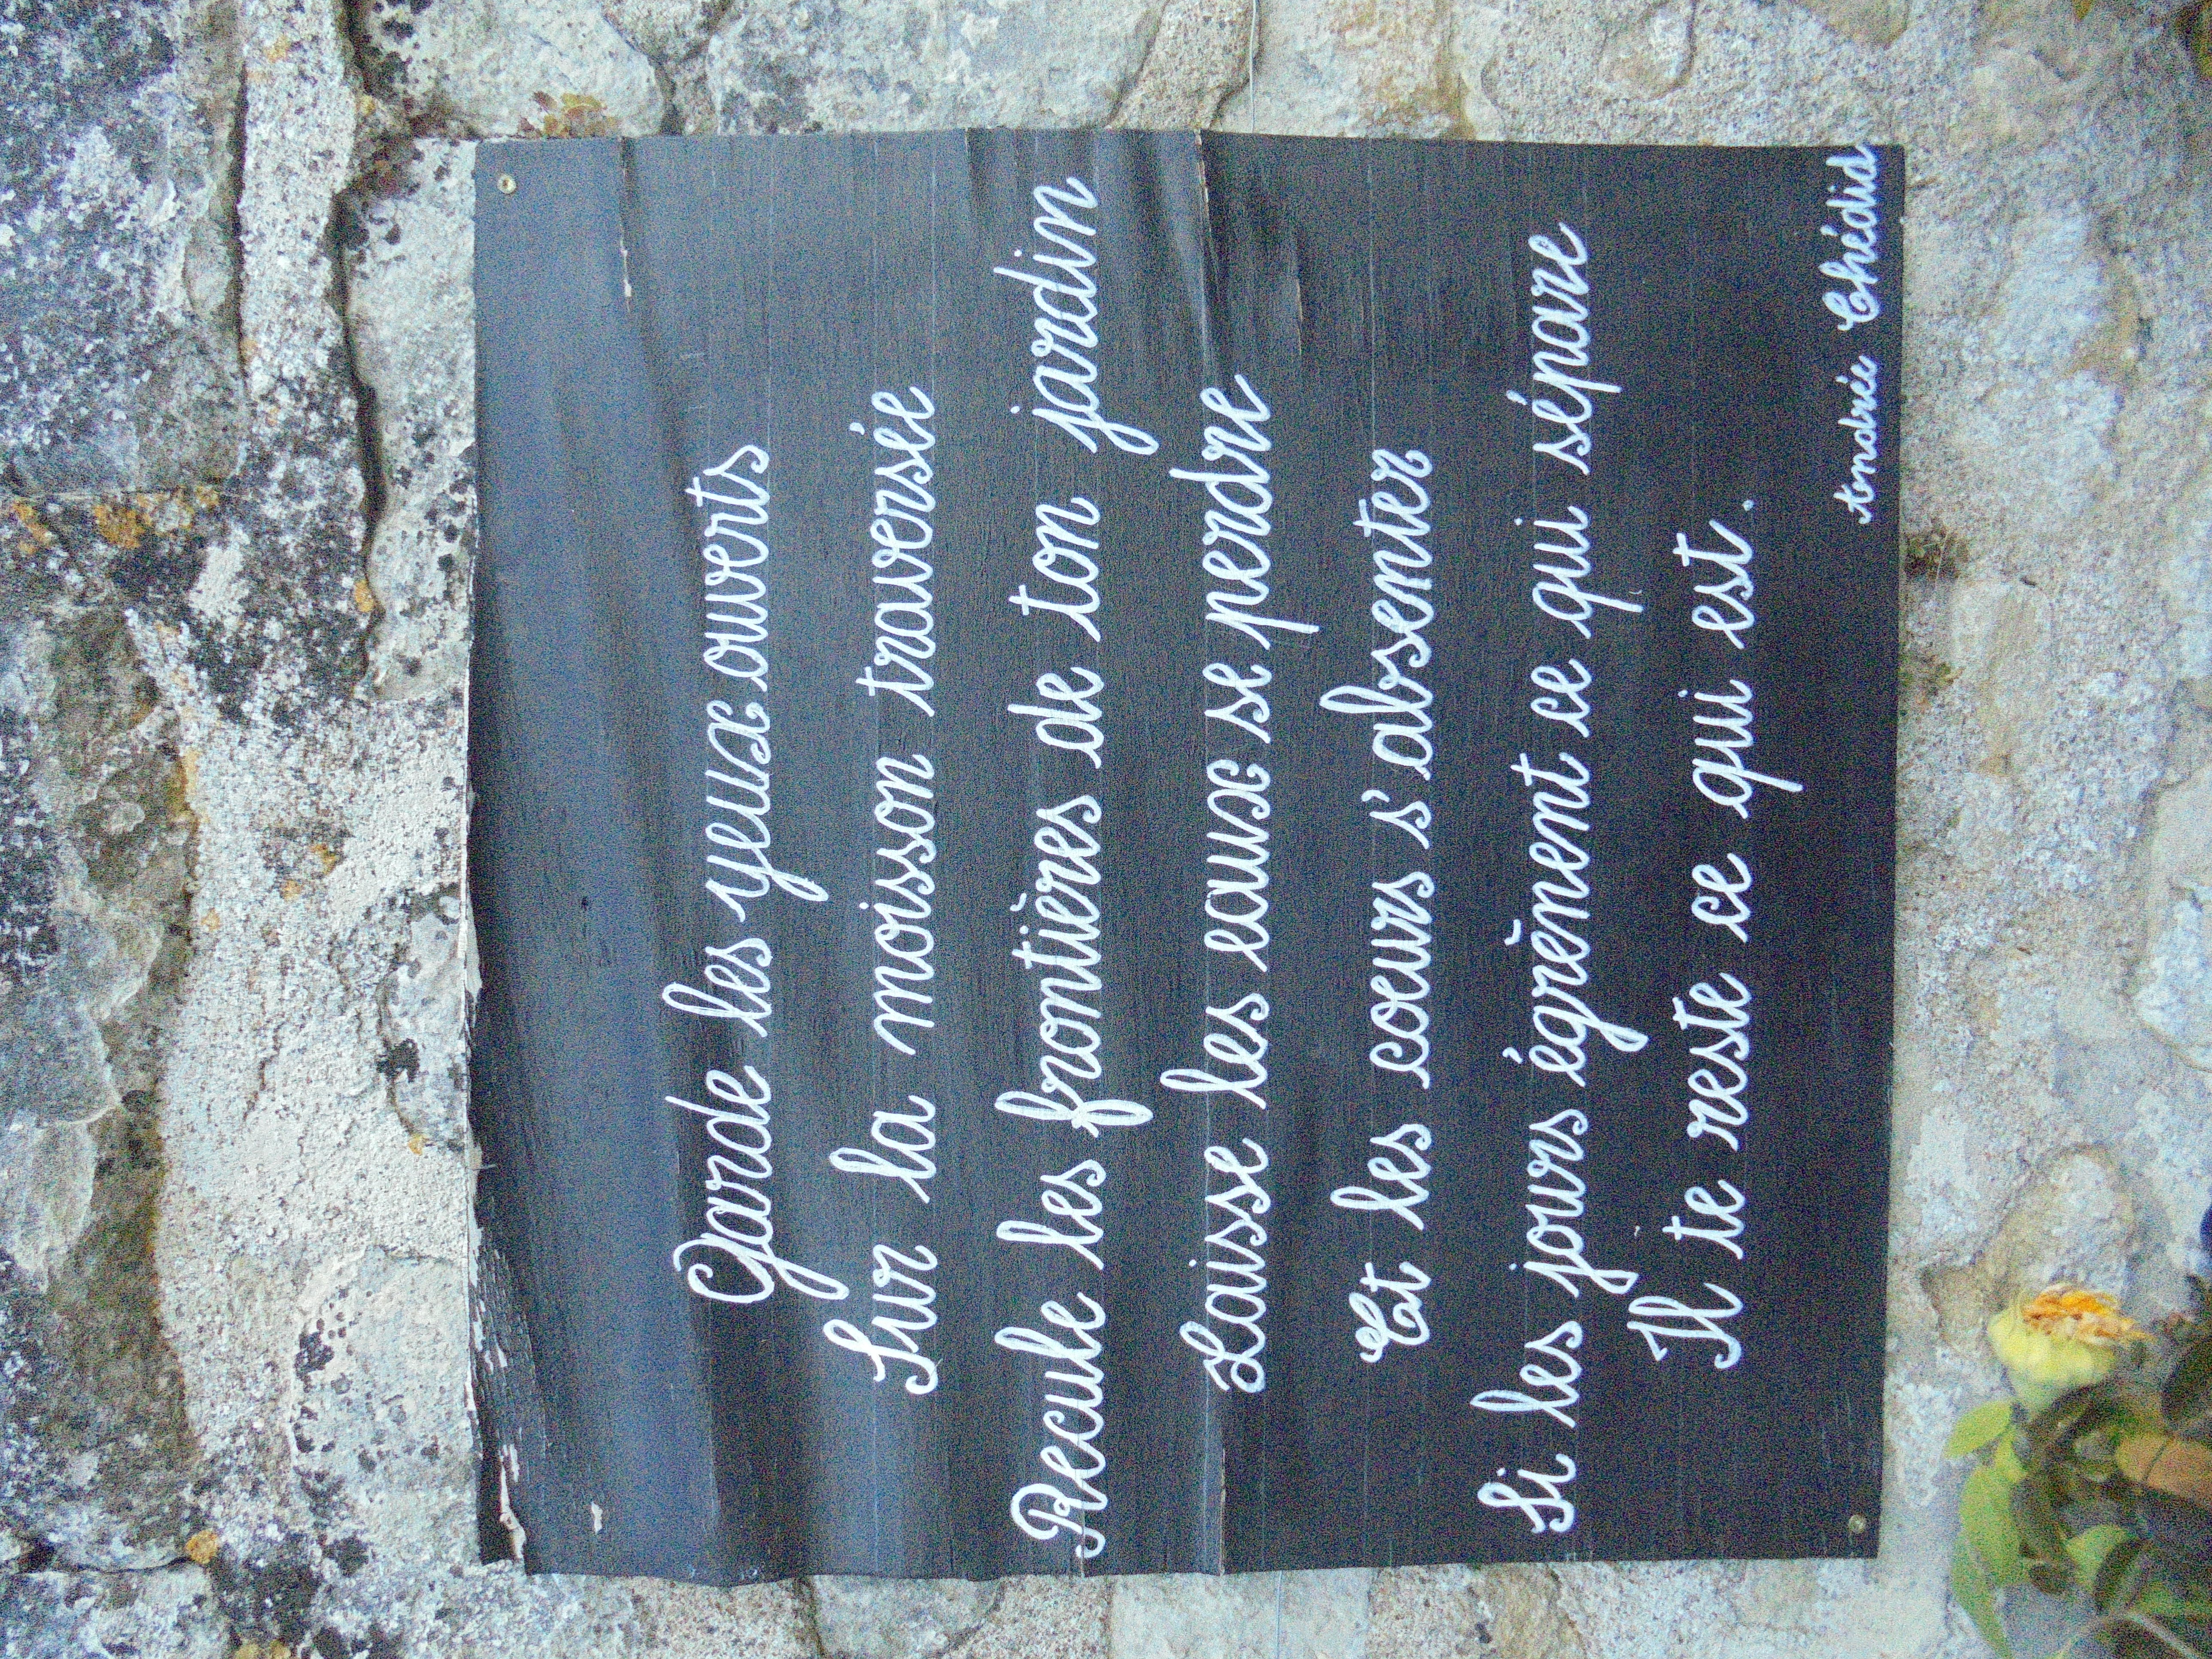 Garde les yeux ouverts
Sur la moisson traversée
Recule les frontières de ton jardin
Laisse les eaux se perdre
Et les cœurs s'absenter
Si les jours égrènent ce qui sépare
Il te reste ce qui est.
Andrée Chédid